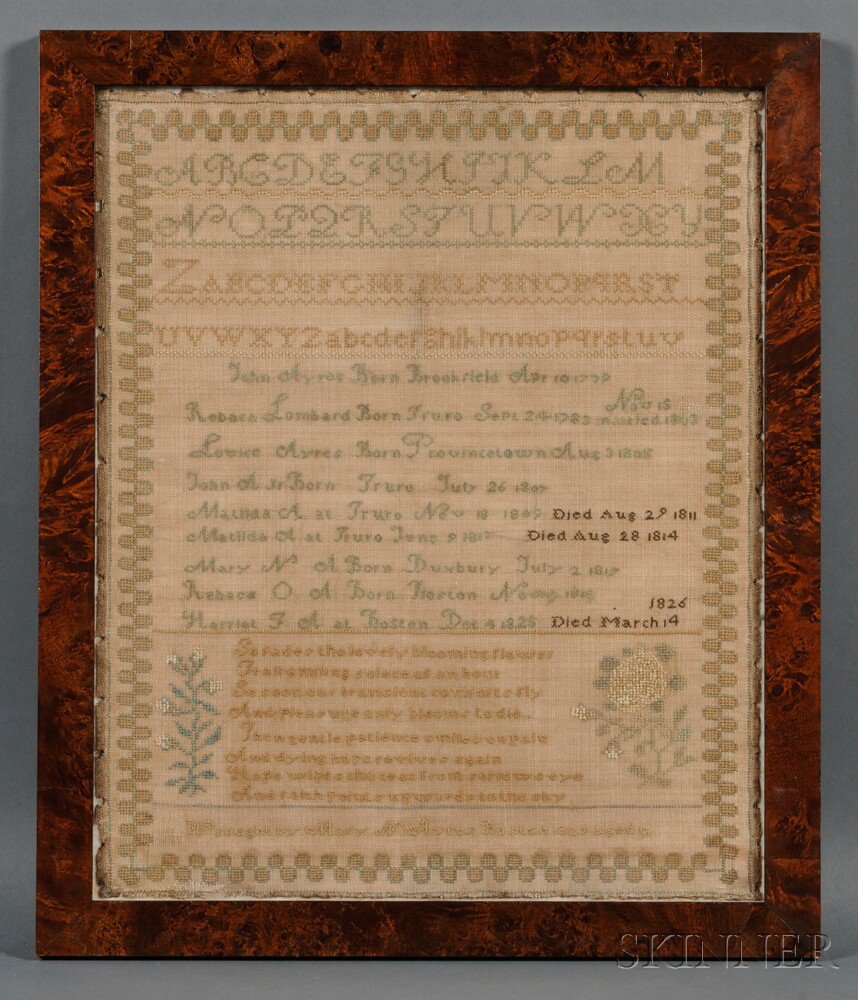 ABCDEFGHIJK LM
NOPQRSTUVWXY
ZABCDEFGHIJKLMNOPQRST
UVWXYZabcdefghiklmnopqrstuv
John Ayres Born Brookfield Apr 10
Nov 15
Rebaca Lombard Born Truro Sept 24 1783 married 1803
Lovice Ayres Born Provincetown Aug 3
John A Jr Born Truro July 26
Matilda A at Truro Nov 18 Died Aug 29 1811
Matilda A at Truro June 9 Died Aug 28 1814
Mary N A Born Duxbury July 2
Rebaca O A Born Boston
1826
Harriet F A at Boston Dec 4 1825 Died March 14
So fades the lovely blooming flower
Frail smiling solace of an hour
So soon our transient comforts fly
And pleasure only blooms to die
Then gentle patience smiles on pain
And dying hope revives again
Hope wipes the tear from sorrows eye
And faith points upwards to the sky
Wrought by Mary N Ayres Boston aged
SKINNER